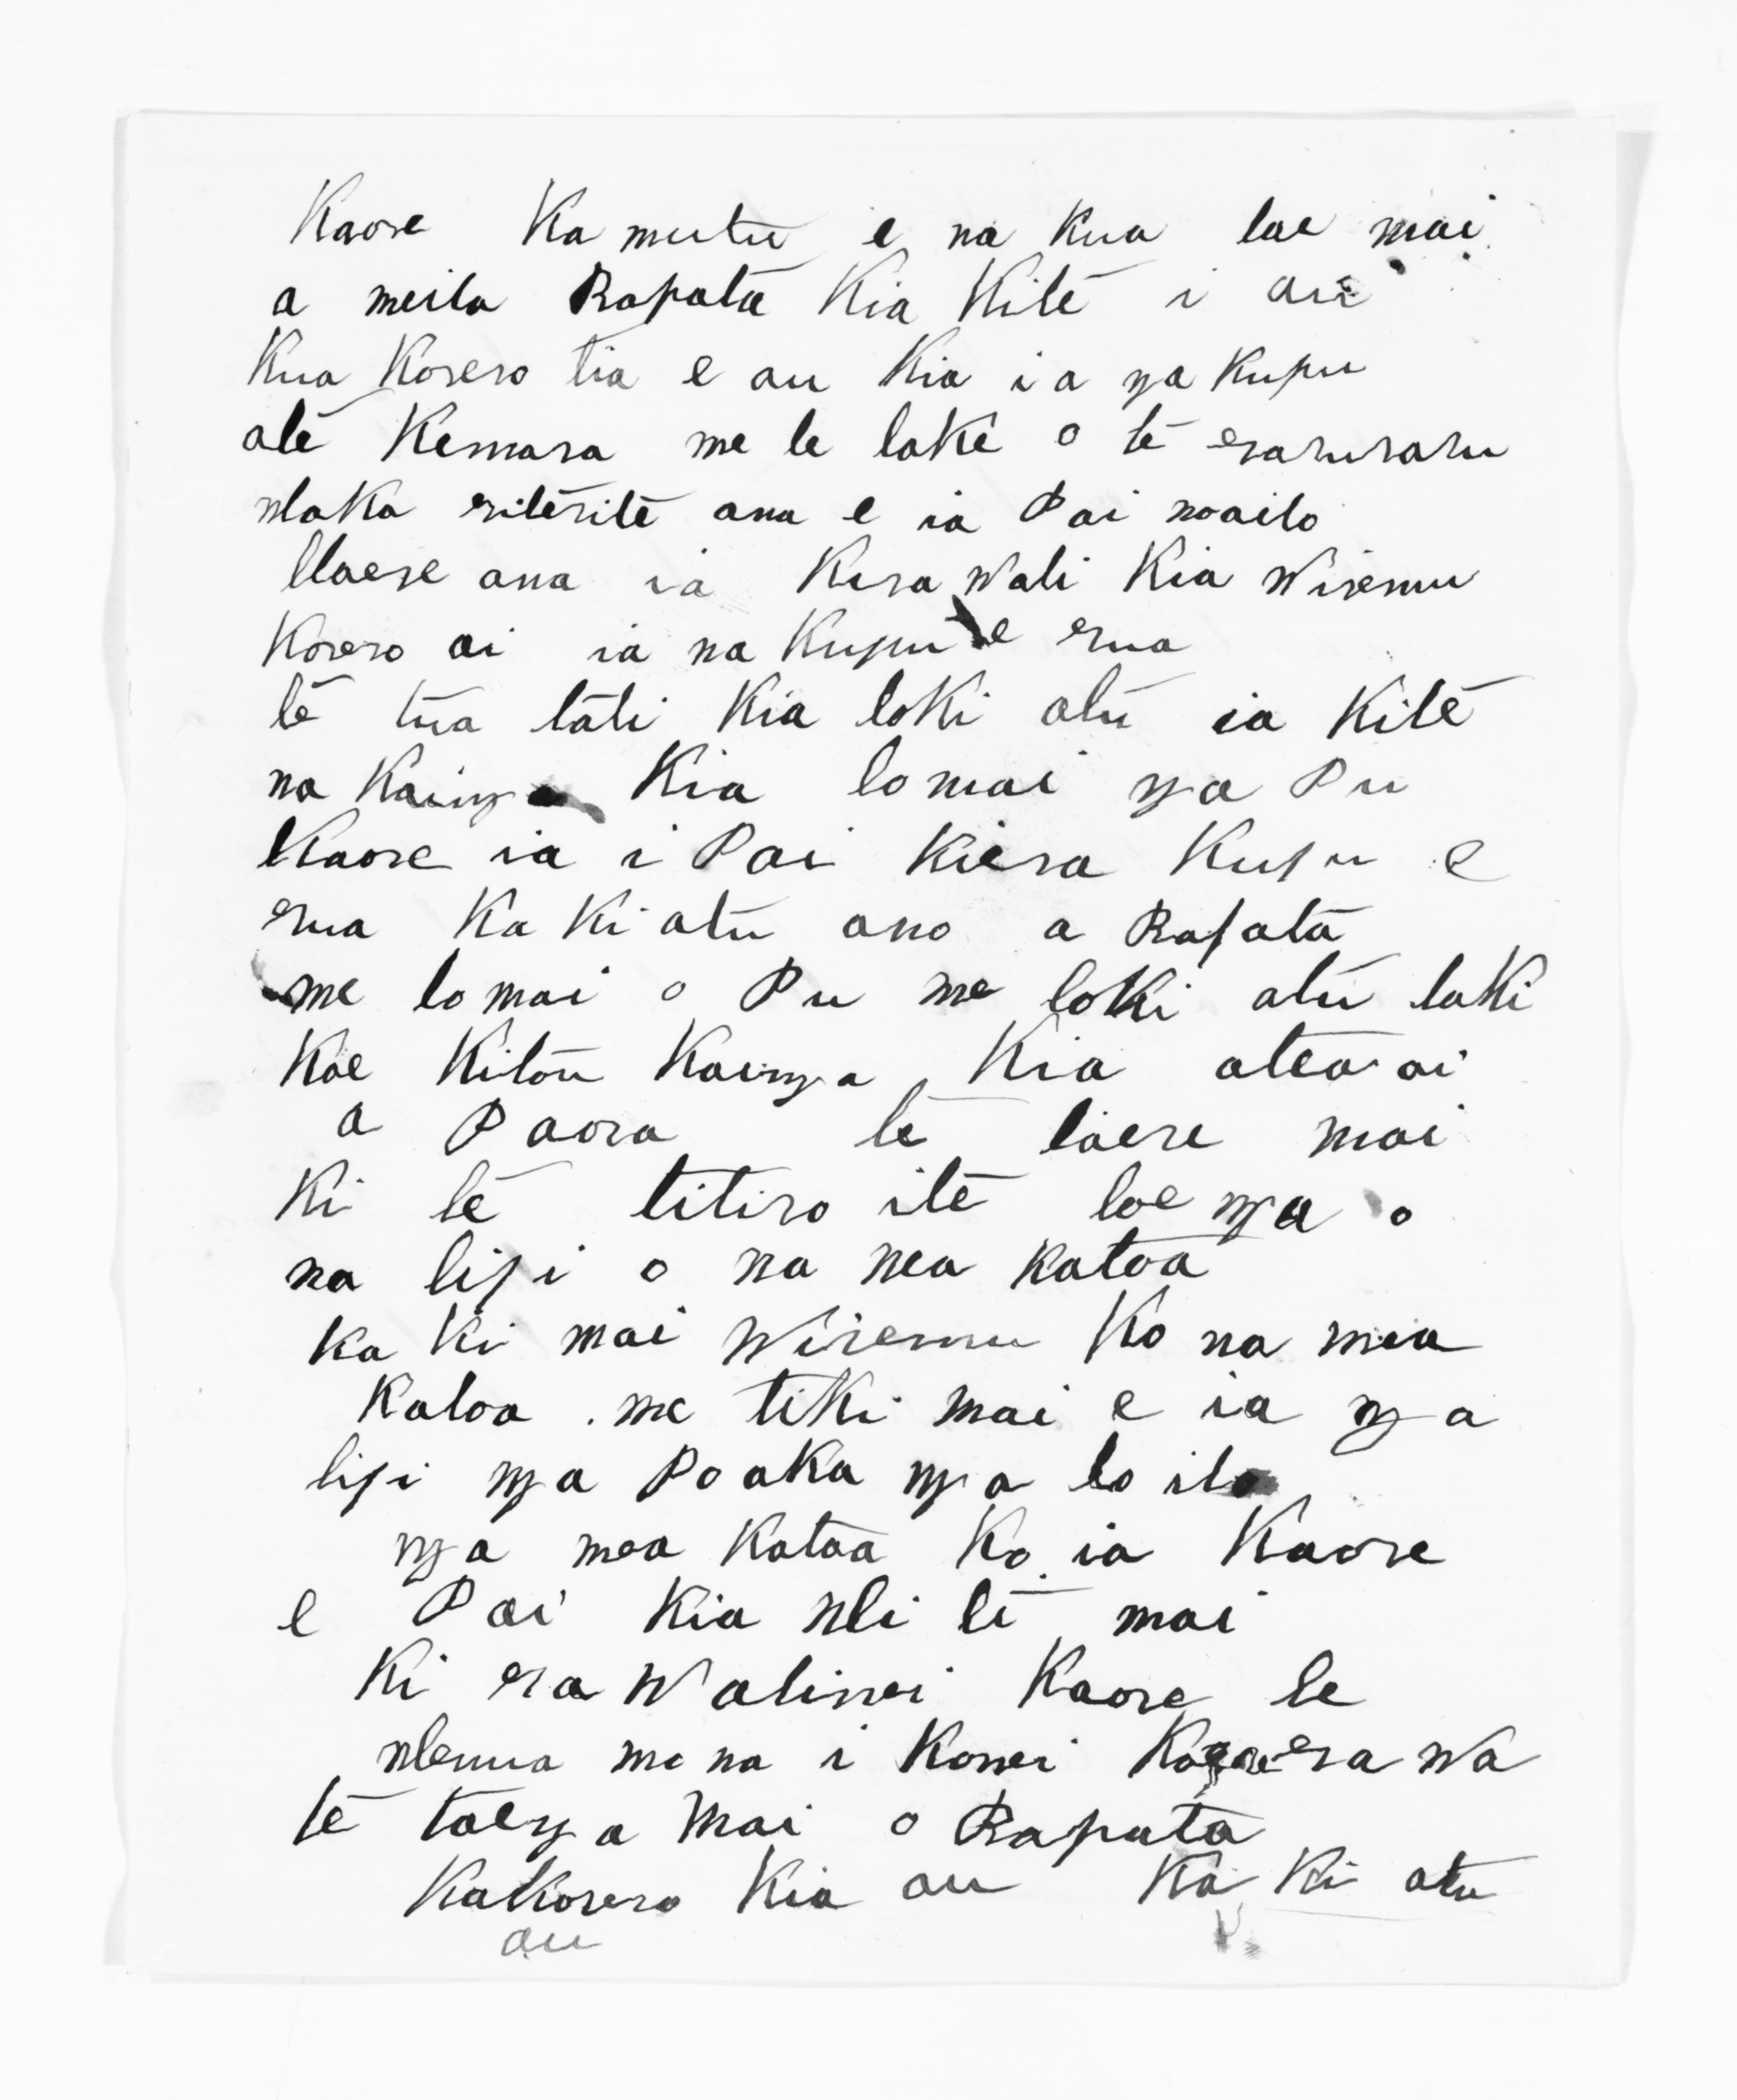 Kaore Ka mutu e na Kua tae mai
a meita Rapata Kia Kite i au
Kua Korero tia e au Kia ia nga Kupu
ate Kemara me te take o te raruraru
Waka riterite ana e ia Pai noaito
Haere ana ia Kira Wati Kia Wiremu
Korero ai ia na Kupu e rua
te tua tati Kia toki atu ia Kite
na Kainga Kia to mai nga Pu
Kaore ia i Pai Kiera Kupu e
rua Ka Ki atu ano a Rapata
me to mai o Pu me toki atu taki
Koe Kitou Kainga Kia atea ai
a Paora te taere mai
Ki te titiro ite toe nga o
na tipi o na mea Katoa
Ka Ki mai Wiremu Ko na mea
Katoa . me tiki mai e ia nga
tipi nga Poaka nga to ito
nga mea Katoa Ko ia Kaore
e Pai Kia Wi ti mai
Ki era Watinei Kaore te
Wenua mo na i Konei Kaore era Wa
te taenga mai o Rapata
Ka Korero Kia au Ka Ki atu
au